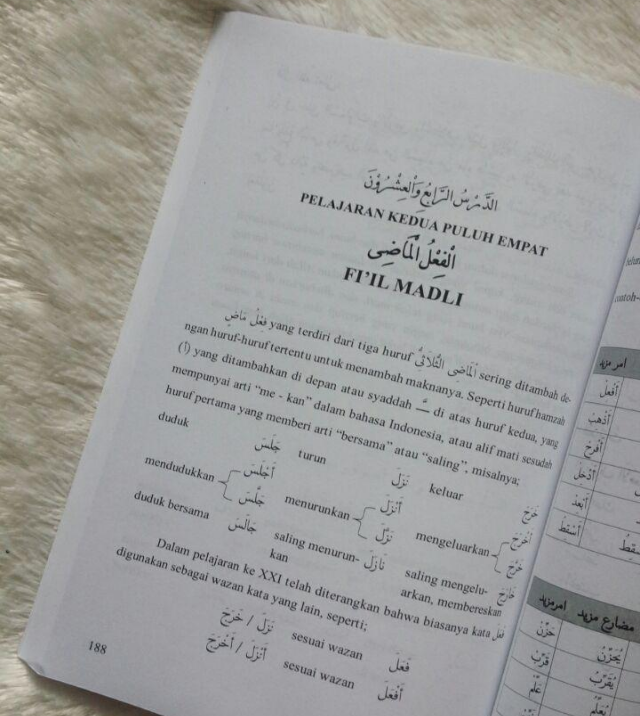 الدَّرْسُ الرَّابِعُ وَالْعِشْرُوْنَ
PELAJARAN KEDUA PULUH EMPAT
الْفِعْلُ الْمَاضِى
FI'IL MADLI
فِعْلٌ مَاضٍ yang terdiri dari tiga huruf الْمَاضِى الثُّلَاثِيُّ sering ditambah de-
ngan huruf-huruf tertentu untuk menambah maknanya. Seperti huruf hamzah
(أ) yang ditambahkan di depan atau syaddah ـّ di atas huruf kedua, yang
mempunyai arti "me - kan" dalam bahasa Indonesia, atau alif mati sesudah
huruf pertama yang memberi arti "bersama" atau "saling", misalnya;
duduk جَلَسَ turun نَزَلَ keluar خَرَجَ
mendudukkan أَجْلَسَ جَلَّسَ menurunkan أَنْزَلَ نَزَّلَ mengeluarkan أَخْرَجَ خَرَّجَ
duduk bersama جَالَسَ saling menurun- نَازَلَ saling mengelu- خَارَجَ
kan arkan, membereskan
Dalam pelajaran ke XXI telah diterangkan bahwa biasanya kata فعل
digunakan sebagai wazan kata yang lain, seperti;
نَزَلَ / خَرَجَ sesuai wazan فَعَلَ
أَنْزَلَ / أَخْرَجَ sesuai wazan أَفْعَلَ
188
contoh-
امر مزيد
أَفْعِلْ
أَذْهِبْ
أَفْرِحْ
أَدْخِلْ
أَبْعِدْ
أَسْقِطْ
مضارع مزيد امرمزيد
يُحَزِّنُ حَزِّنْ
يُقَرِّبُ قَرِّبْ
يُعَلِّمُ عَلِّمْ